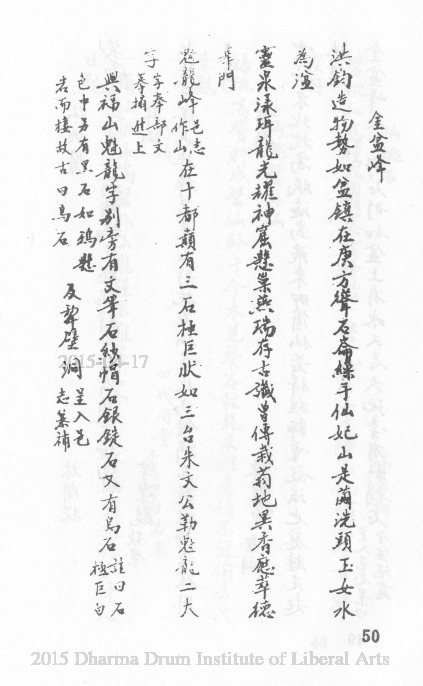 金盆峰
洪鈞造物勢如盆鎮在庚方聳石崙綠手仙妃山是蘭洗頭玉女水
為
靈泉渌珥龍光耀神窟懸巢燕瑞存古讖曾傳栽菊地異香應萃德
門
魁龍峰邑志作山在十都巔有三石極巨狀如三台朱文公勒魁龍二大
字字奉部文奉捐進上
興福山魁龍字別旁有文筆石紗帽石銀錠石又有烏石註曰石極巨白
色中另有黑石如鴉懸
岩而棲故古曰烏石 及 壁洞呈入邑志纂補
2015-04-17
50
2015 Dharma Drum Institute of Liberal Arts